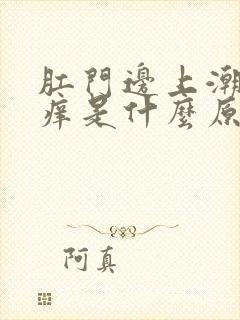 肛門邊上潮
痒是什麼原
阿真